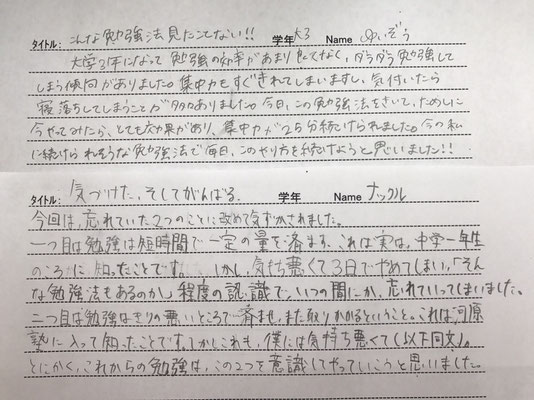 タイトル： こんな勉強法見たことない!! 学年 大3 Name ゆいぞう
大学3年になって勉強の効率があまり良くなく、ダラダラ勉強して
しまう傾向がありました。集中力もすぐきれてしまいますし、気付いたら
寝落ちしてしまうことが多々ありました。今日、この勉強法をきいて、ためしに
今やってみたら、とても効果があり、集中力が25分続けられました。今の私
に続けられそうな勉強法で毎日、このやり方を続けようと思いました!!
タイトル： 気づけた、そしてがんばる。 学年 Name ナックル
今回は、忘れていた2つのことに改めて気づかされました。
一つ目は勉強は短時間で一定の量を済ます、これは実は、中学一年生
のころに知ったことです。しかし、気持ち悪くて3日でやめてしまい、「そん
な勉強法もあるのか」程度の認識で、いつの間にか、忘れていってしまいました。
二つ目は勉強はきりの悪いところで済ませ、また取りかかるということ。これは河原
塾に入って知ったことです。しかしこれも、僕には気持ち悪くて(以下同文)。
とにかく、これからの勉強は、この2つを意識してやっていこうと思いました。